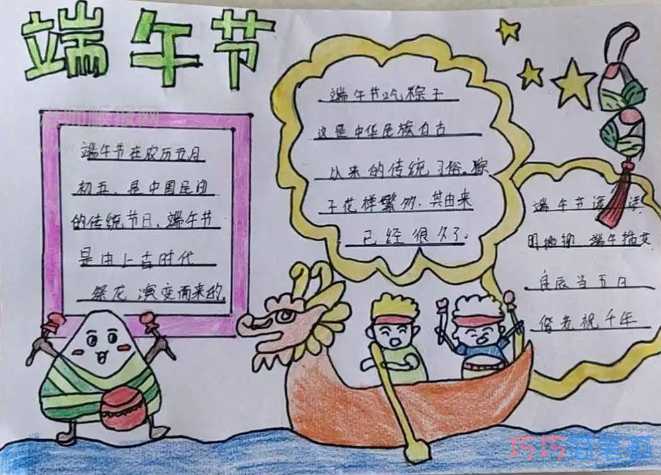 端午节
端午节在农历五月
初五、是中国民间
的传统节日、端午节
是由上古时代
祭龙演变而来的
端午节吃粽子
这是中华民族自古
以来的传统习俗、粽
子花样繁多.其由来
已经很久了.
端午节
端午插艾
良辰当五日
偕老祝千年
巧巧